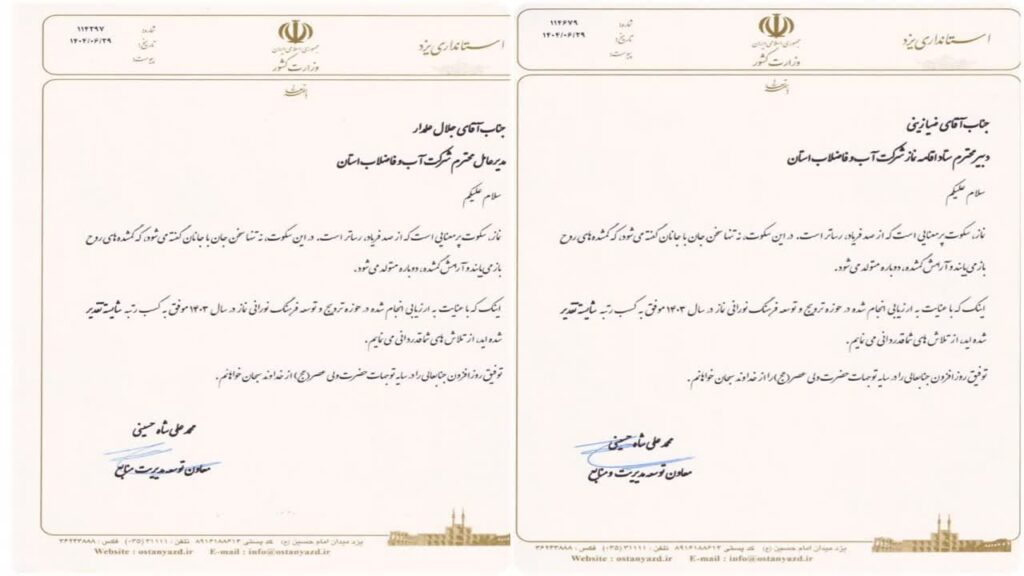 استانداری یزد
جمهوری اسلامی ایران
وزارت کشور
شماره: ۱۱۴۶۷۹
تاریخ: ۱۴۰۴/۰۶/۲۹
پیوست:
جناب آقای ضیازینی
دبیر محترم ستاد اقامه نماز شرکت آب و فاضلاب استان
سلام علیکم
نماز، سکوت پرمعنایی است که از صد فریاد، رساتر است. در این سکوت، نه تنها سخن جان با جانان گفته می‌شود، که گمشده‌های روح
بازمی‌یابند و آرامش گمشده، دوباره متولد می‌شود.
اینک که با عنایت به ارزیابی انجام شده در حوزه ترویج و توسعه فرهنگ نورانی نماز در سال ۱۴۰۳ موفق به کسب رتبه شایسته تقدیر
شده اید، از تلاش های شما قدردانی می نمایم.
توفیق روزافزون جنابعالی را در سایه توجهات حضرت ولی عصر(عج) را از خداوند سبحان خواهانم.
محمد علی شاه حسینی
معاون توسعه مدیریت و منابع
یزد میدان امام حسین (ع) کد پستی ۸۹۱۶۱۸۸۶۱۳ تلفن: ۳۱۱۱۱ (۰۳۵) فکس: ۳۶۲۴۳۸۸۸
Website : ostanyazd.ir E-mail : info@ostanyazd.ir
استانداری یزد
جمهوری اسلامی ایران
وزارت کشور
شماره: ۱۱۴۲۹۷
تاریخ: ۱۴۰۴/۰۶/۲۹
پیوست:
جناب آقای جلال علمدار
مدیرعامل محترم شرکت آب و فاضلاب استان
سلام علیکم
نماز، سکوت پرمعنایی است که از صد فریاد، رساتر است. در این سکوت، نه تنها سخن جان با جانان گفته می‌شود، که گمشده‌های روح
بازمی‌یابند و آرامش گمشده، دوباره متولد می‌شود.
اینک که با عنایت به ارزیابی انجام شده در حوزه ترویج و توسعه فرهنگ نورانی نماز در سال ۱۴۰۳ موفق به کسب رتبه شایسته تقدیر
شده اید، از تلاش های شما قدردانی می نمایم.
توفیق روزافزون جنابعالی را در سایه توجهات حضرت ولی عصر(عج) از خداوند سبحان خواهانم.
محمد علی شاه حسینی
معاون توسعه مدیریت منابع
یزد میدان امام حسین (ع) کد پستی ۸۹۱۶۱۸۸۶۱۳ تلفن: ۳۱۱۱۱ (۰۳۵) فکس: ۳۶۲۴۳۸۸۸
Website : ostanyazd.ir E-mail : info@ostanyazd.ir